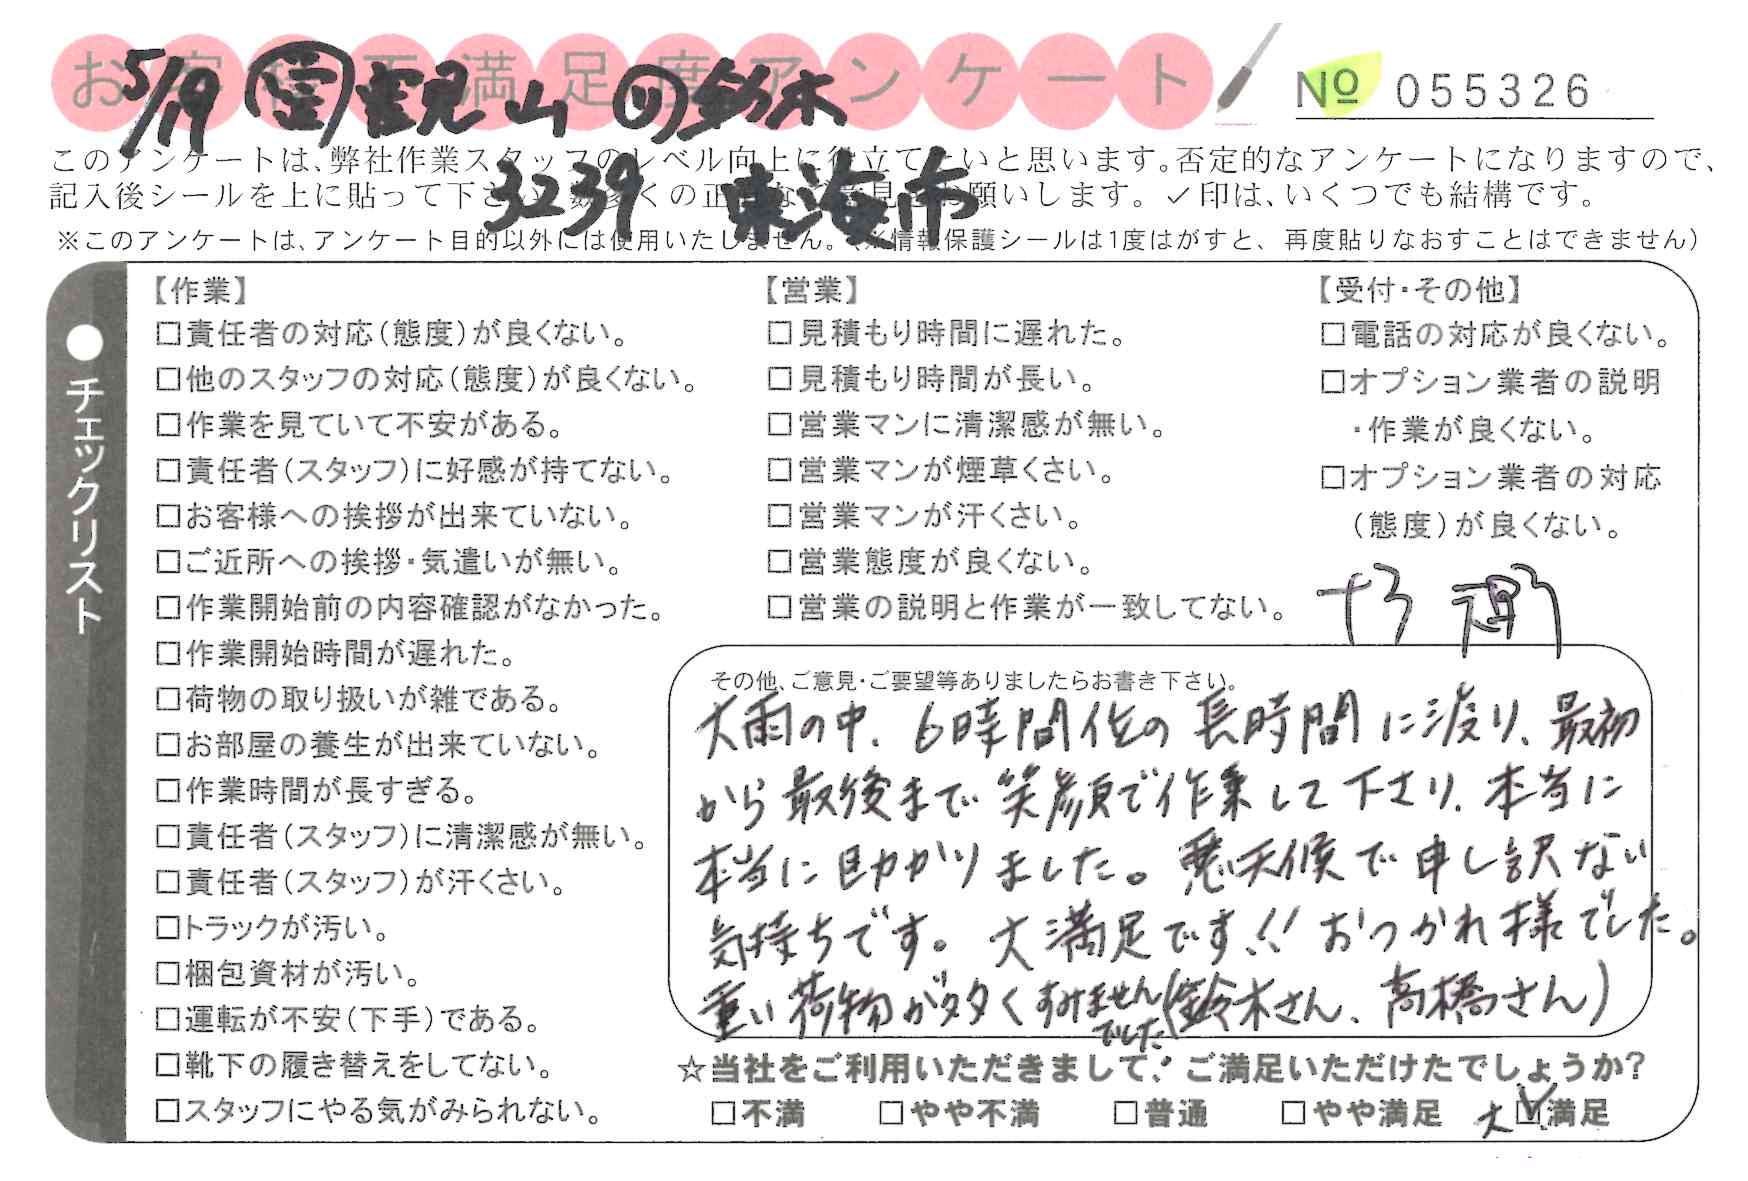 お客様不満足度アンケート
№ 055326
5/19 営 観山 リ 鈴木
3239 東海市
このアンケートは、弊社作業スタッフのレベル向上に役立てたいと思います。否定的なアンケートになりますので、
記入後シールを上に貼って下さい。数多くの正直なご意見をお願いします。✓印は、いくつでも結構です。
※このアンケートは、アンケート目的以外には使用いたしません。(※情報保護シールは1度はがすと、再度貼りなおすことはできません)
●チェックリスト
【作業】
□責任者の対応(態度)が良くない。
□他のスタッフの対応(態度)が良くない。
□作業を見ていて不安がある。
□責任者(スタッフ)に好感が持てない。
□お客様への挨拶が出来ていない。
□ご近所への挨拶・気遣いが無い。
□作業開始前の内容確認がなかった。
□作業開始時間が遅れた。
□荷物の取り扱いが雑である。
□お部屋の養生が出来ていない。
□作業時間が長すぎる。
□責任者(スタッフ)に清潔感が無い。
□責任者(スタッフ)が汗くさい。
□トラックが汚い。
□梱包資材が汚い。
□運転が不安(下手)である。
□靴下の履き替えをしてない。
□スタッフにやる気がみられない。
【営業】
□見積もり時間に遅れた。
□見積もり時間が長い。
□営業マンに清潔感が無い。
□営業マンが煙草くさい。
□営業マンが汗くさい。
□営業態度が良くない。
□営業の説明と作業が一致してない。
【受付・その他】
□電話の対応が良くない。
□オプション業者の説明
・作業が良くない。
□オプション業者の対応
(態度)が良くない。
その他、ご意見・ご要望等ありましたらお書き下さい。
大雨の中、6時間位の長時間に渡り、最初
から最後まで笑顔で作業して下さり、本当に
本当に助かりました。悪天候で申し訳ない
気持ちです。大満足です!! おつかれ様でした。
重い荷物が多くすみませんでした(鈴木さん、高橋さん)
☆当社をご利用いただきまして、ご満足いただけたでしょうか?
□不満 □やや不満 □普通 □やや満足 大☑満足